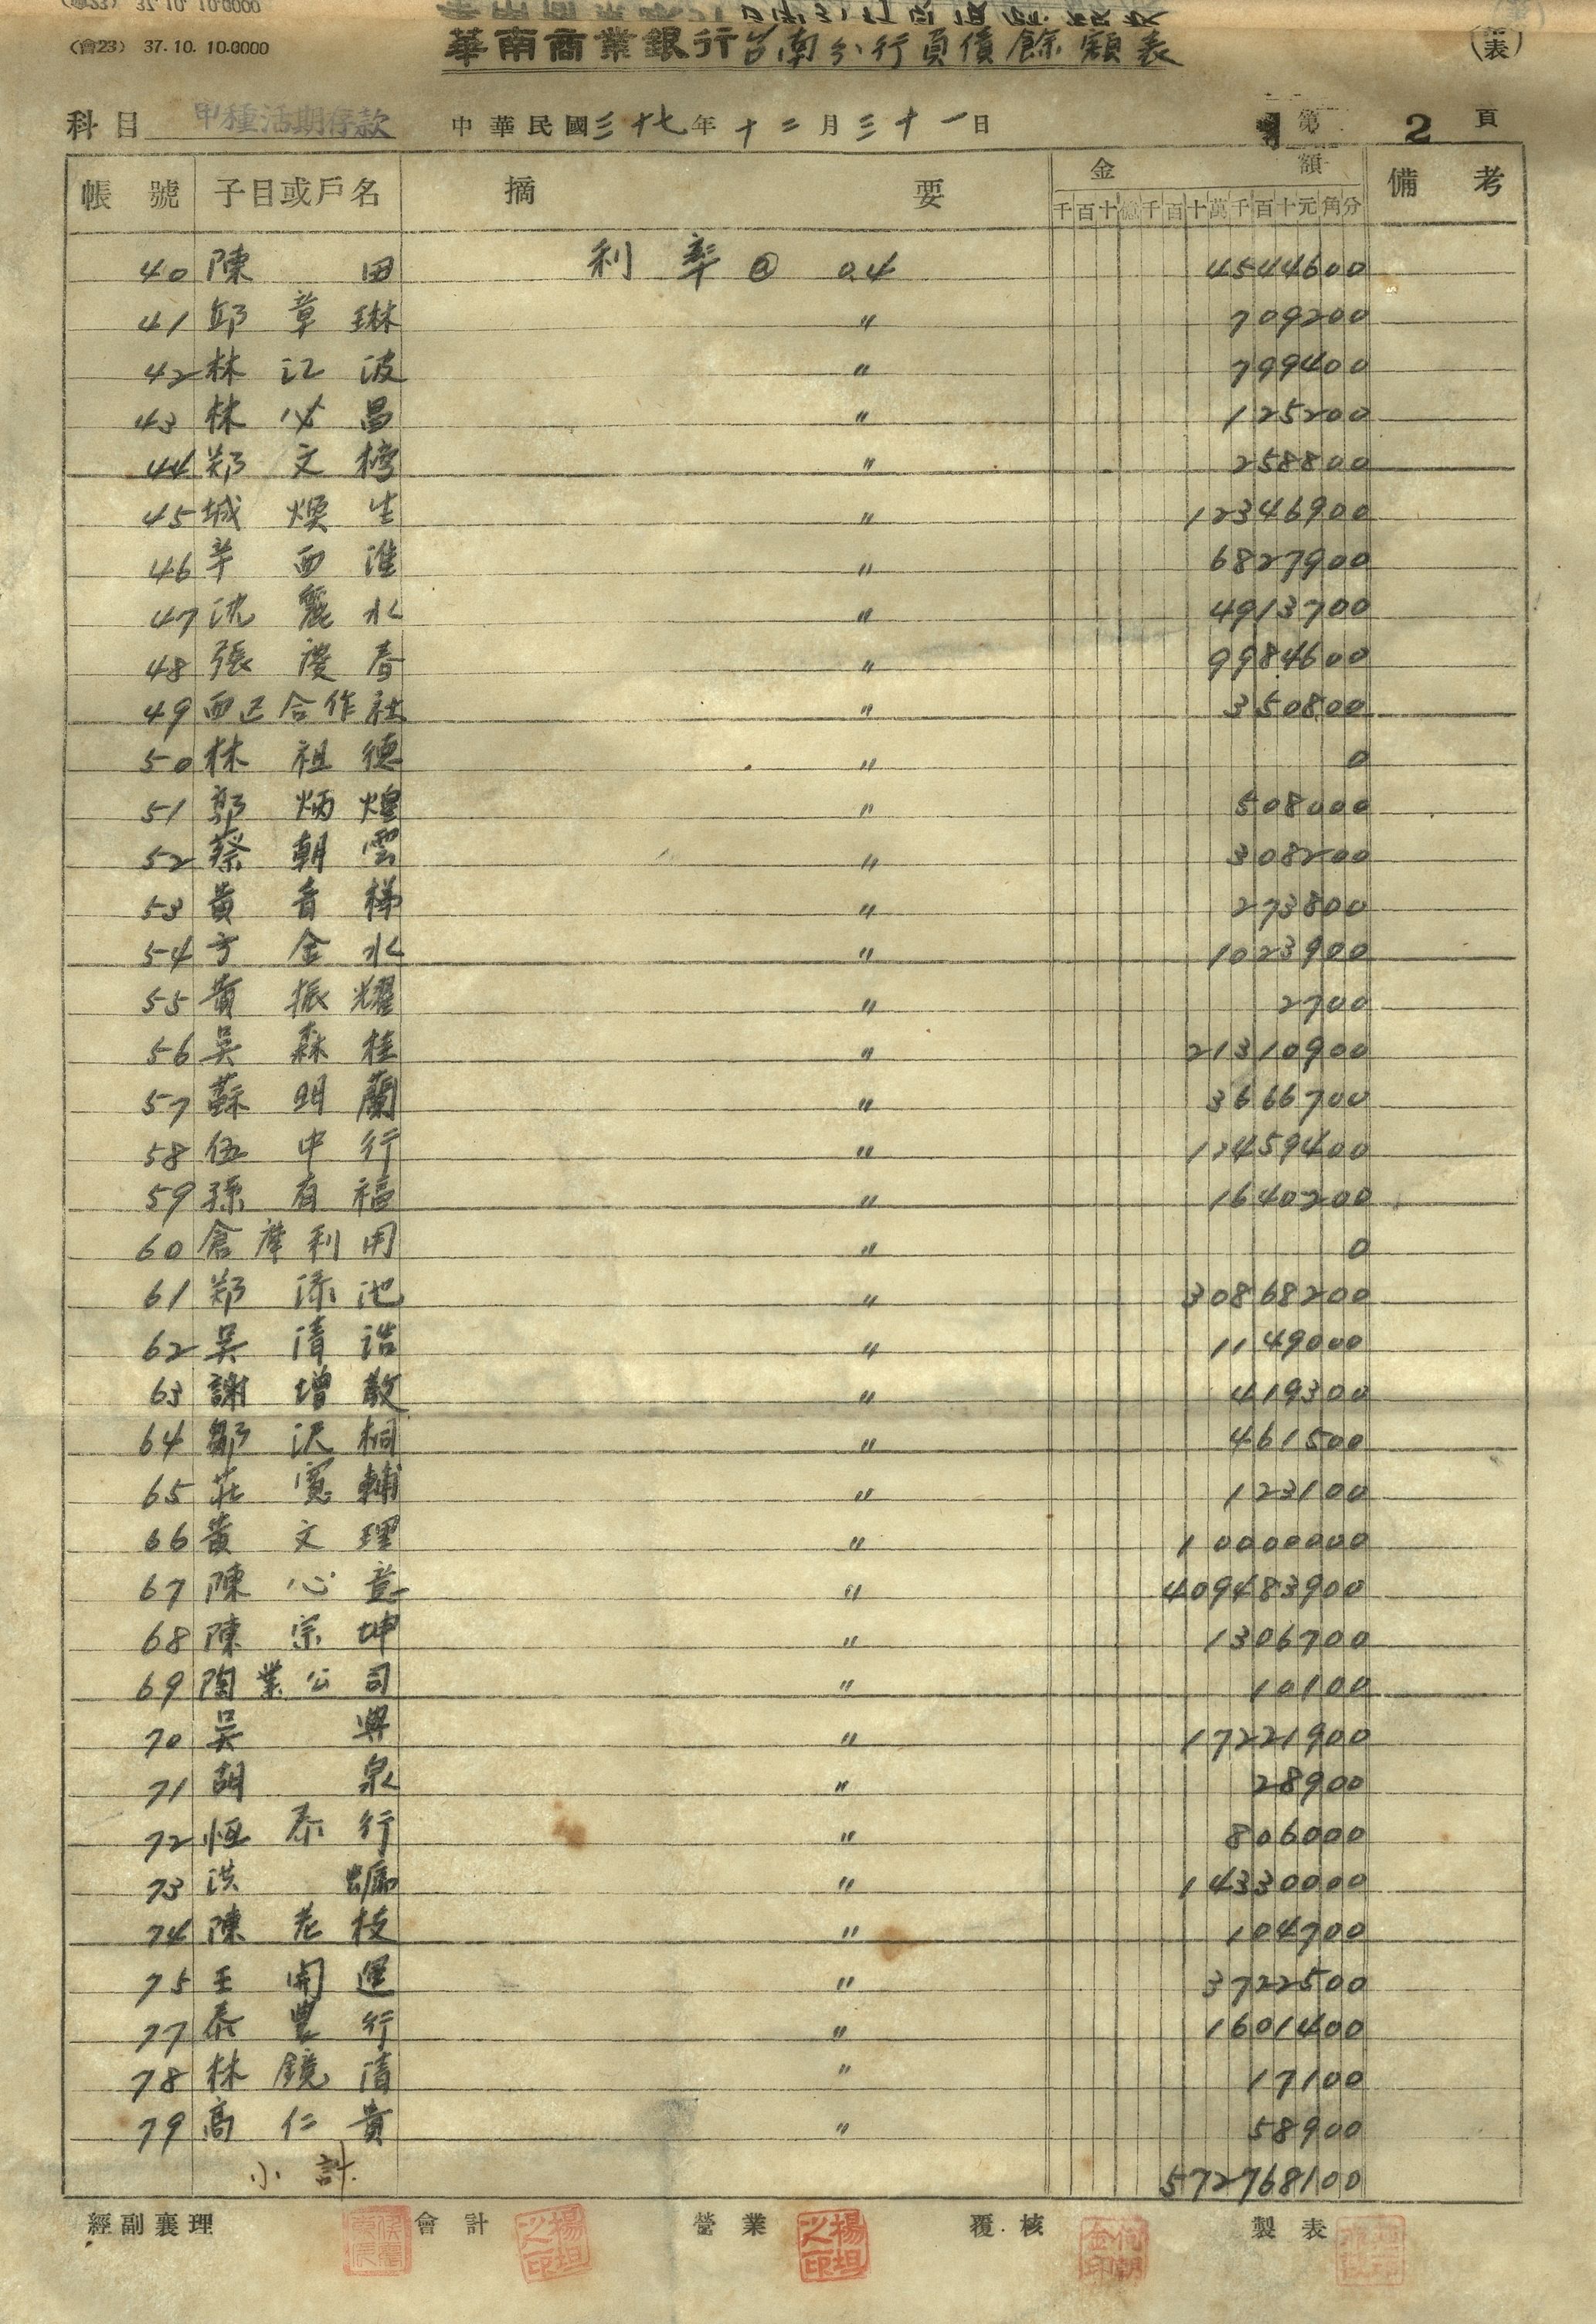 (會23) 37.10.10.0000
華南商業銀行台南分行負債餘額表
(表)
科目 甲種活期存款 中華民國三十七年十二月三十一日 第 2 頁
帳號 子目或戶名 摘要 金額 備考
千百十億千百十萬千百十元角分
40 陳田 利率@0.4 4544600
41 邱章琳 〃 709200
42 林江波 〃 799400
43 林必昌 〃 125200
44 郑文榜 〃 258800
45 城煥生 〃 12346900
46 羊西淮 〃 6827900
47 沈麗水 〃 4913700
48 張慶春 〃 9984600
49 西区合作社 〃 350800
50 林祖德 〃 0
51 郭炳煌 〃 508000
52 蔡朝雲 〃 308200
53 黃香梯 〃 273800
54 方金水 〃 1023900
55 黃振耀 〃 2700
56 吳森桂 〃 21310900
57 蘇明蘭 〃 3666700
58 伍中行 〃 11459400
59 孫有福 〃 1640200
60 倉庫利用 〃 0
61 郑添池 〃 30868200
62 吳清誥 〃 1149000
63 謝增散 〃 419300
64 鄒沢桐 〃 461500
65 莊寬輔 〃 123100
66 黃文理 〃 10000000
67 陳心意 〃 409483900
68 陳宗坤 〃 1306700
69 陶業公司 〃 10100
70 吳興 〃 17221900
71 胡泉 〃 28900
72 恒泰行 〃 806000
73 洪 〃 14330000
74 陳花枝 〃 104700
75 王開運 〃 3722500
77 泰豐行 〃 1601400
78 林鏡清 〃 17100
79 高仁貴 〃 58900
小計 572768100
經副襄理 會計 營業 覆核 製表
楊坦之印 楊坦之印